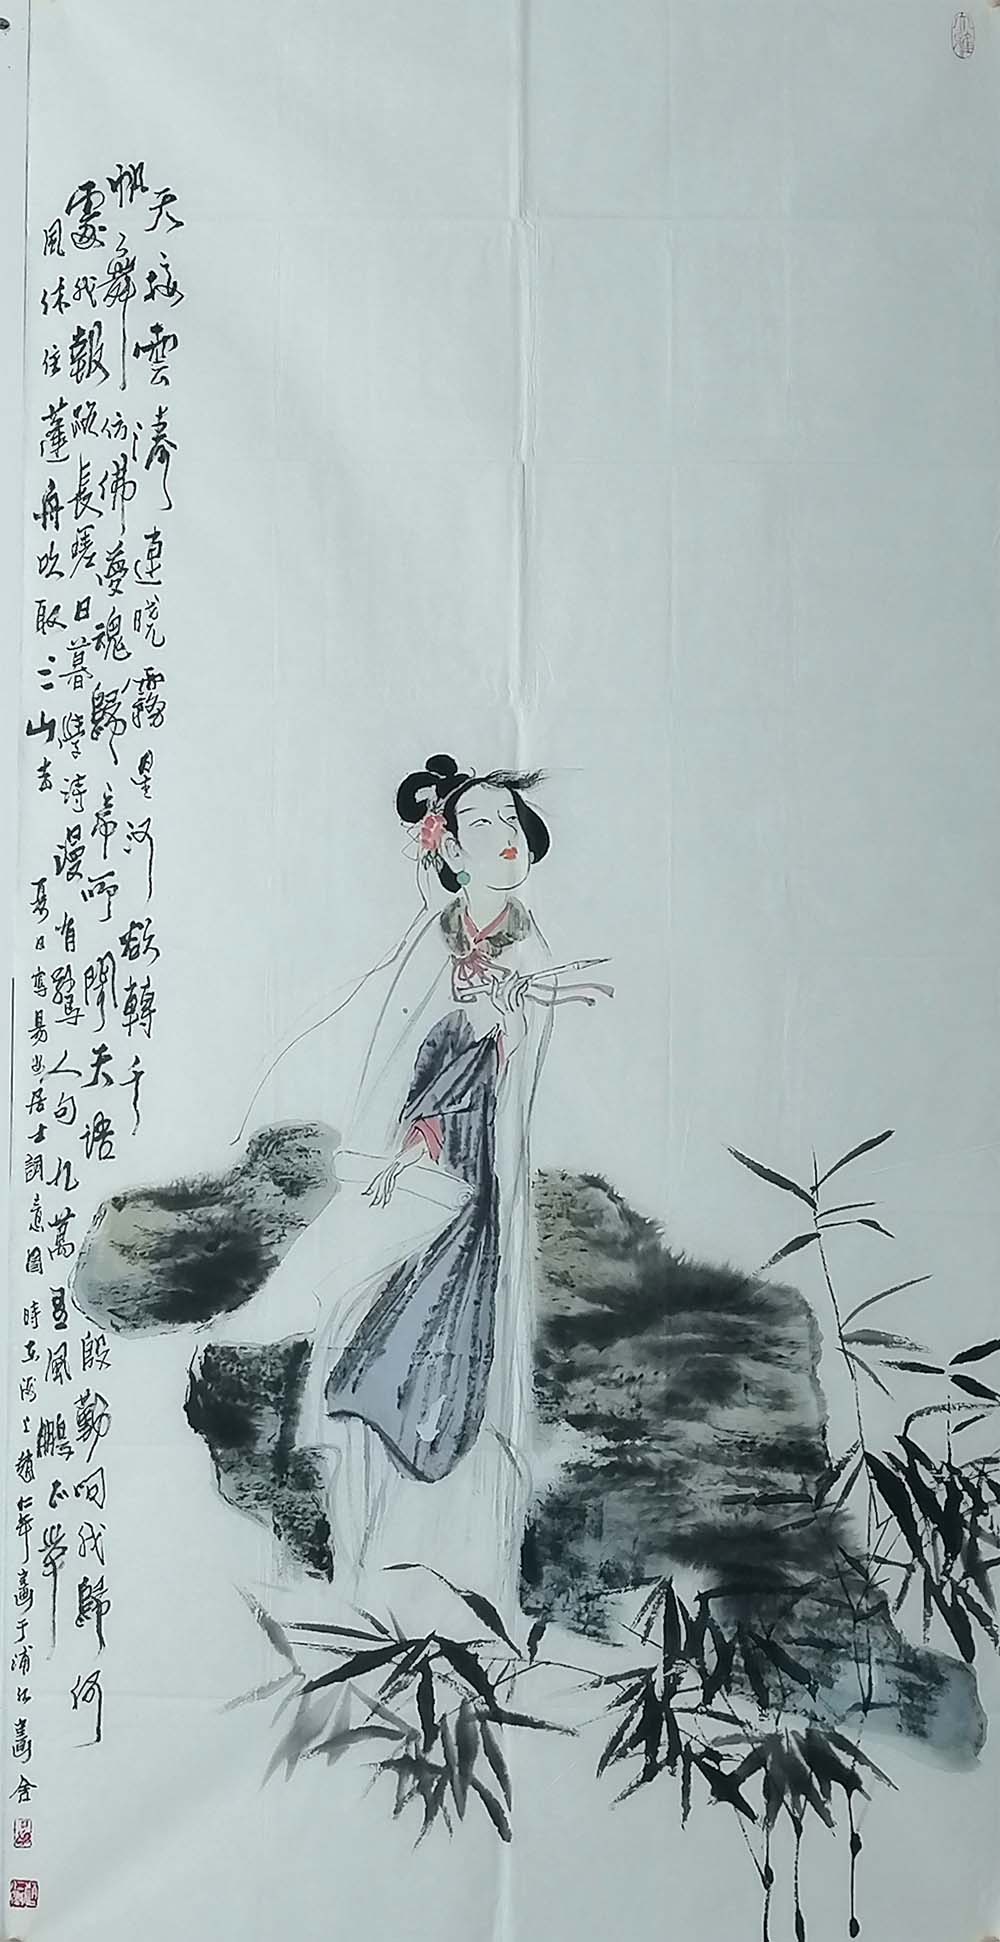 天接雲濤連曉霧星河欲轉千
帆舞仿佛夢魂歸帝所聞天語殷勤問我歸何
處我報路長嗟日暮學詩漫有驚人句九萬里風鵬正舉
風休住蓬舟吹取三山去
夏日寫易安居士詞意圖時在海上趙仁年畫于浦江畫舍